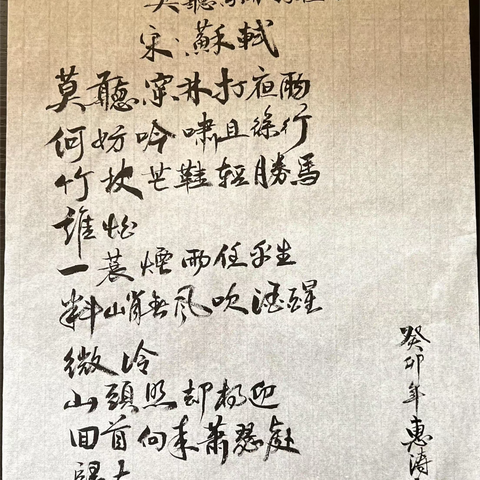 宋:蘇軾
莫聽穿林打
何妨吟嘯且徐行
竹杖芒鞋輕勝馬
誰怕
一蓑煙雨任平生
料峭春風吹酒醒
微冷
山頭照却相迎
回首向來蕭瑟處
歸去
癸卯年惠濤